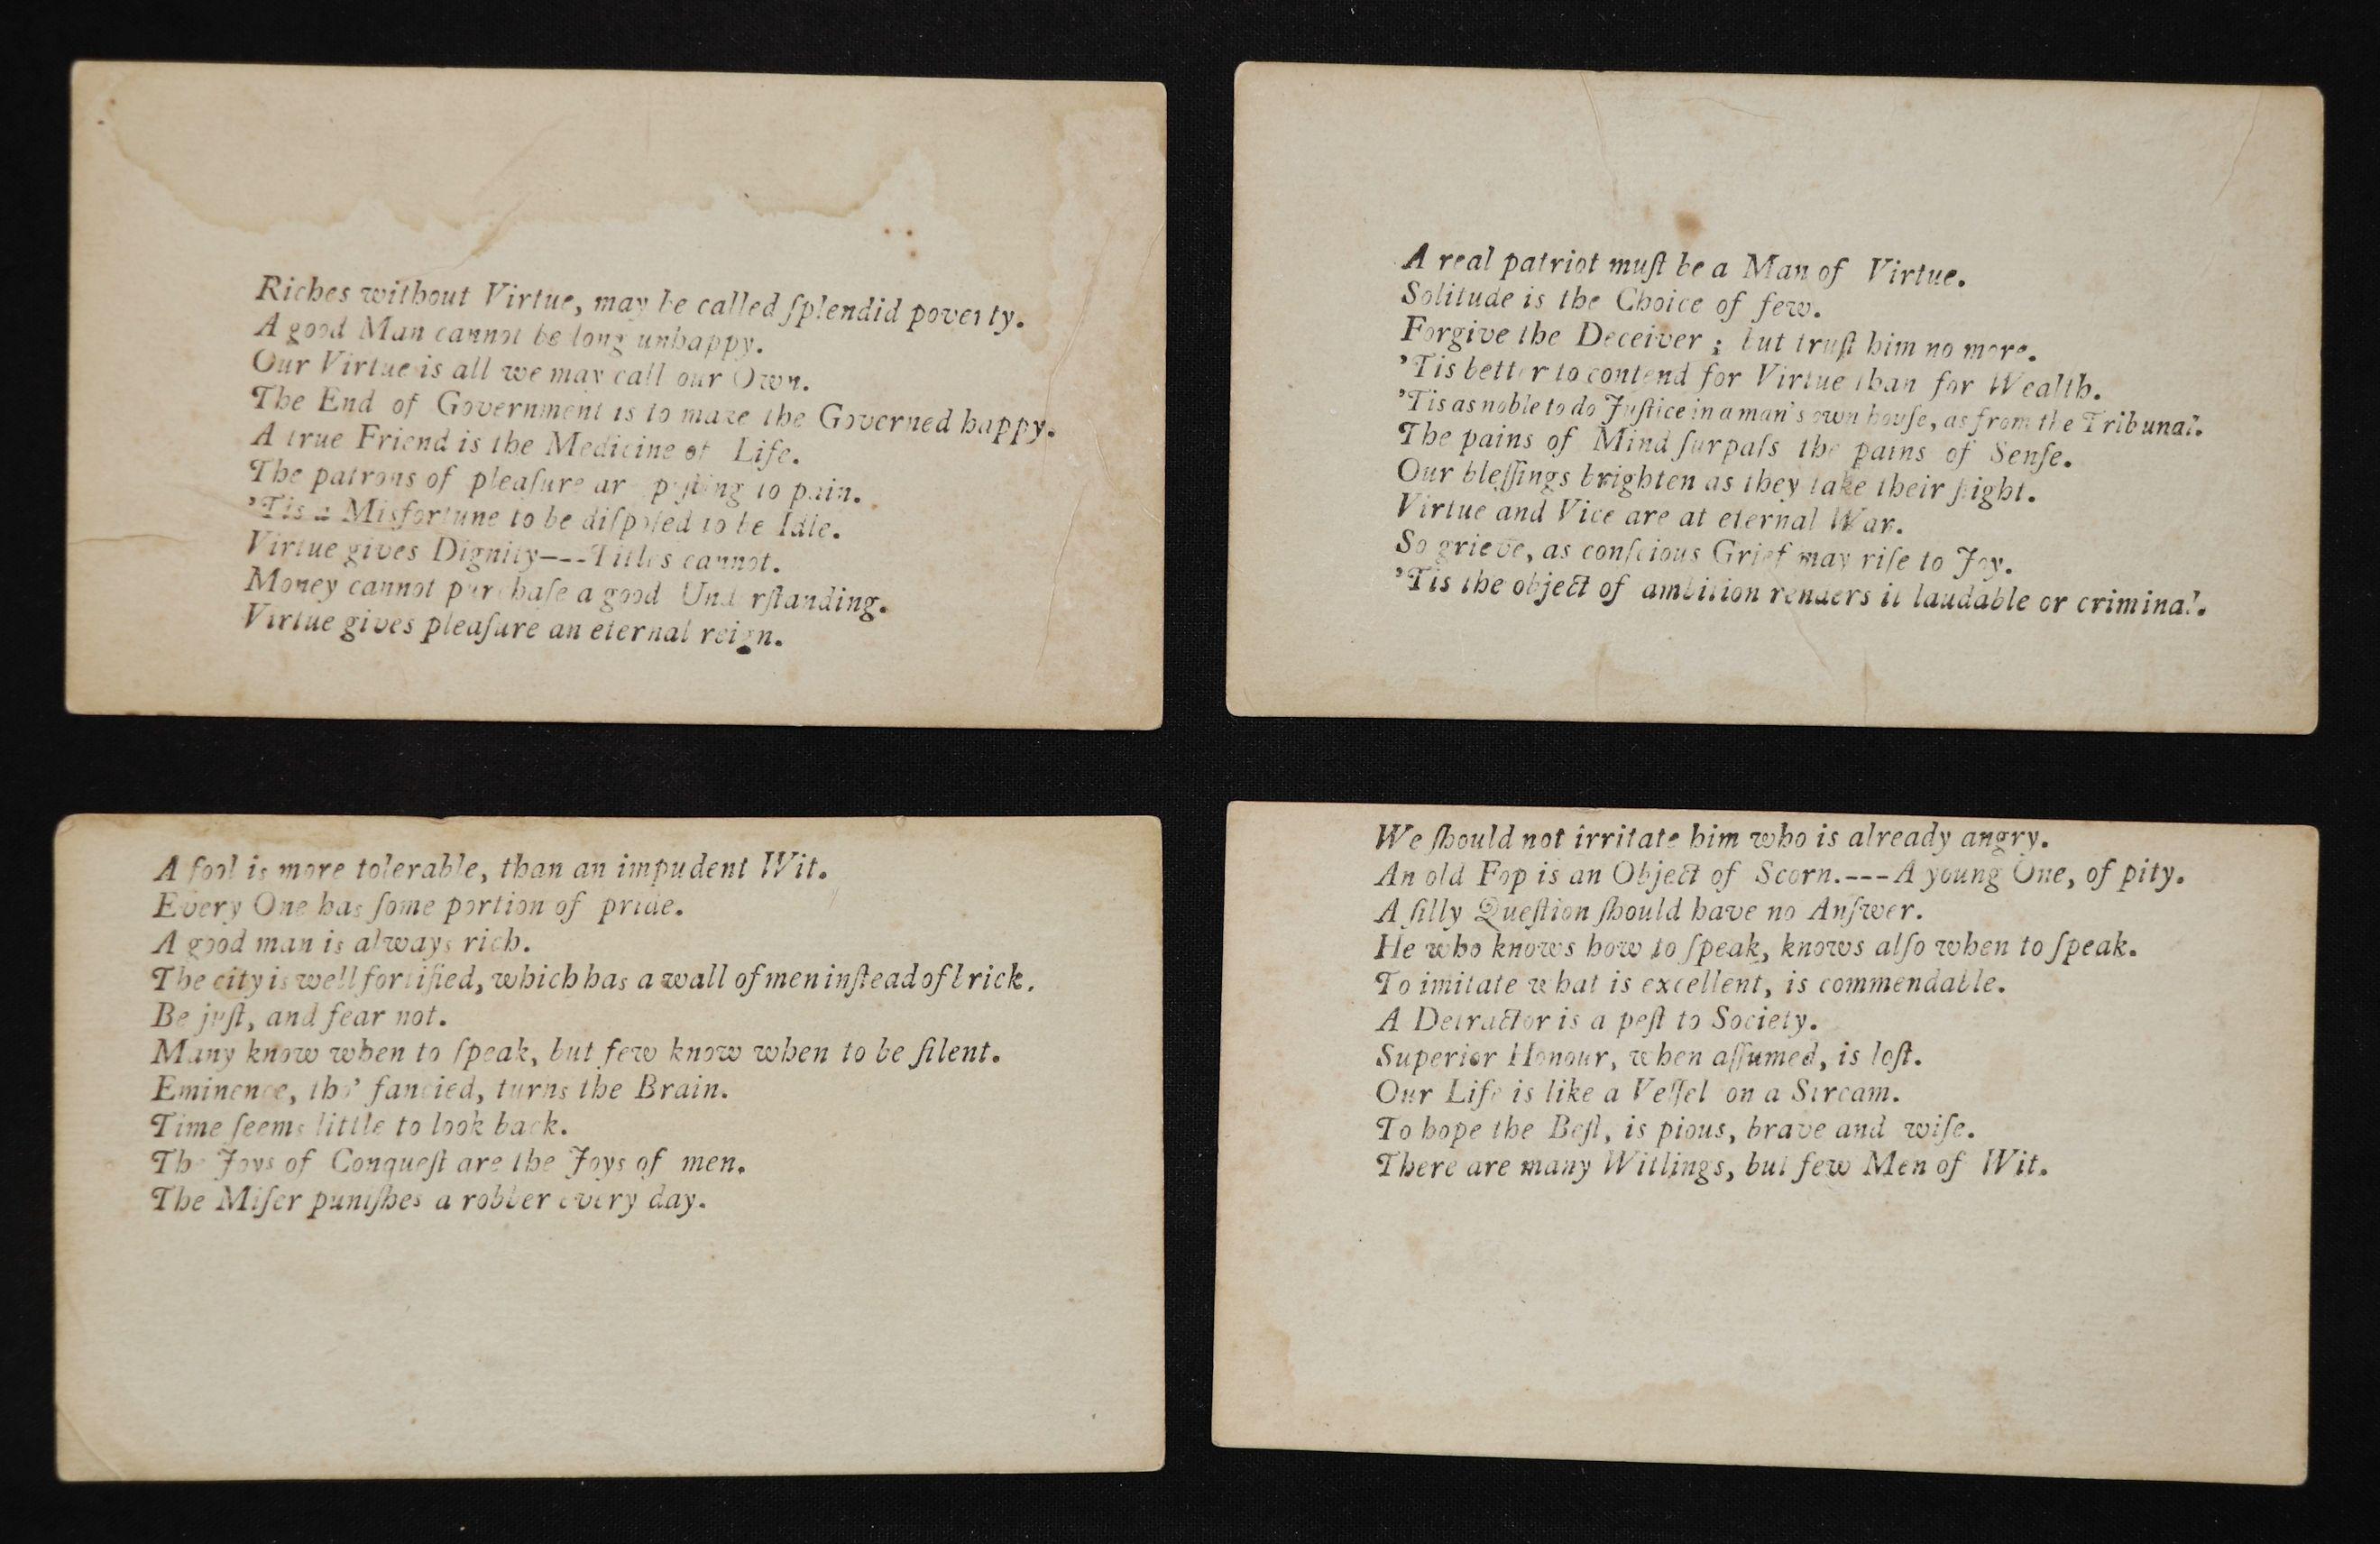 Riches without Virtue, may be called ſplendid poverty.
A good Man cannot be long unhappy.
Our Virtue is all we may call our Own.
The End of Government is to make the Governed happy.
A true Friend is the Medicine of Life.
The patrons of pleaſure are poſting to pain.
'Tis a Misfortune to be diſpoſed to be Idle.
Virtue gives Dignity---Titles cannot.
Money cannot purchaſe a good Underſtanding.
Virtue gives pleaſure an eternal reign.
A real patriot muſt be a Man of Virtue.
Solitude is the Choice of few.
Forgive the Deceiver; but truſt him no more.
'Tis better to contend for Virtue than for Wealth.
'Tis as noble to do Juſtice in a man's own houſe, as from the Tribunal.
The pains of Mind ſurpaſs the pains of Senſe.
Our bleſſings brighten as they take their flight.
Virtue and Vice are at eternal War.
So grieve, as conſcious Grief may riſe to Joy.
'Tis the object of ambition renders it laudable or criminal.
A fool is more tolerable, than an impudent Wit.
Every One has ſome portion of pride.
A good man is always rich.
The city is well fortified, which has a wall of men inſtead of brick.
Be juſt, and fear not.
Many know when to ſpeak, but few know when to be ſilent.
Eminence, tho' fancied, turns the Brain.
Time ſeems little to look back.
The Joys of Conqueſt are the Joys of men.
The Miſer puniſhes a robber every day.
We ſhould not irritate him who is already angry.
An old Fop is an Object of Scorn.---A young One, of pity.
A ſilly Queſtion ſhould have no Anſwer.
He who knows how to ſpeak, knows alſo when to ſpeak.
To imitate what is excellent, is commendable.
A Detractor is a peſt to Society.
Superior Honour, when aſſumed, is loſt.
Our Life is like a Veſſel on a Stream.
To hope the Beſt, is pious, brave and wiſe.
There are many Witlings, but few Men of Wit.